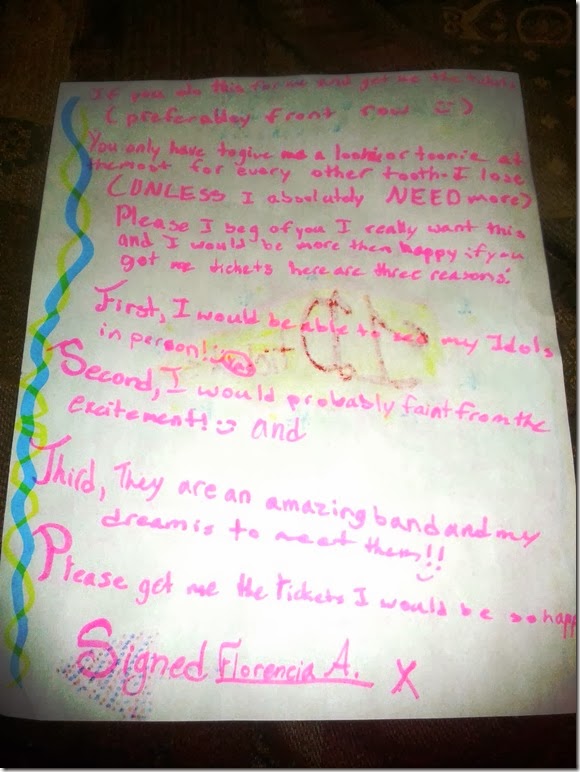 If you do this for me and get me the tickets
(preferabley front row ☺)
You only have to give me a loonie or toonie at
the most for every other tooth I lose
(UNLESS I absolutely NEED more)
Please I beg of you I really want this
and I would be more then happy if you
got me tickets here are three reasons:
First, I would be able to see my Idols
in person!
Second, I would probably faint from the
excitement! ☺ and
Third, They are an amazing band and my
dream is to meet them!!
Please get me the tickets I would be so happ
Signed Florencia A. X
1D